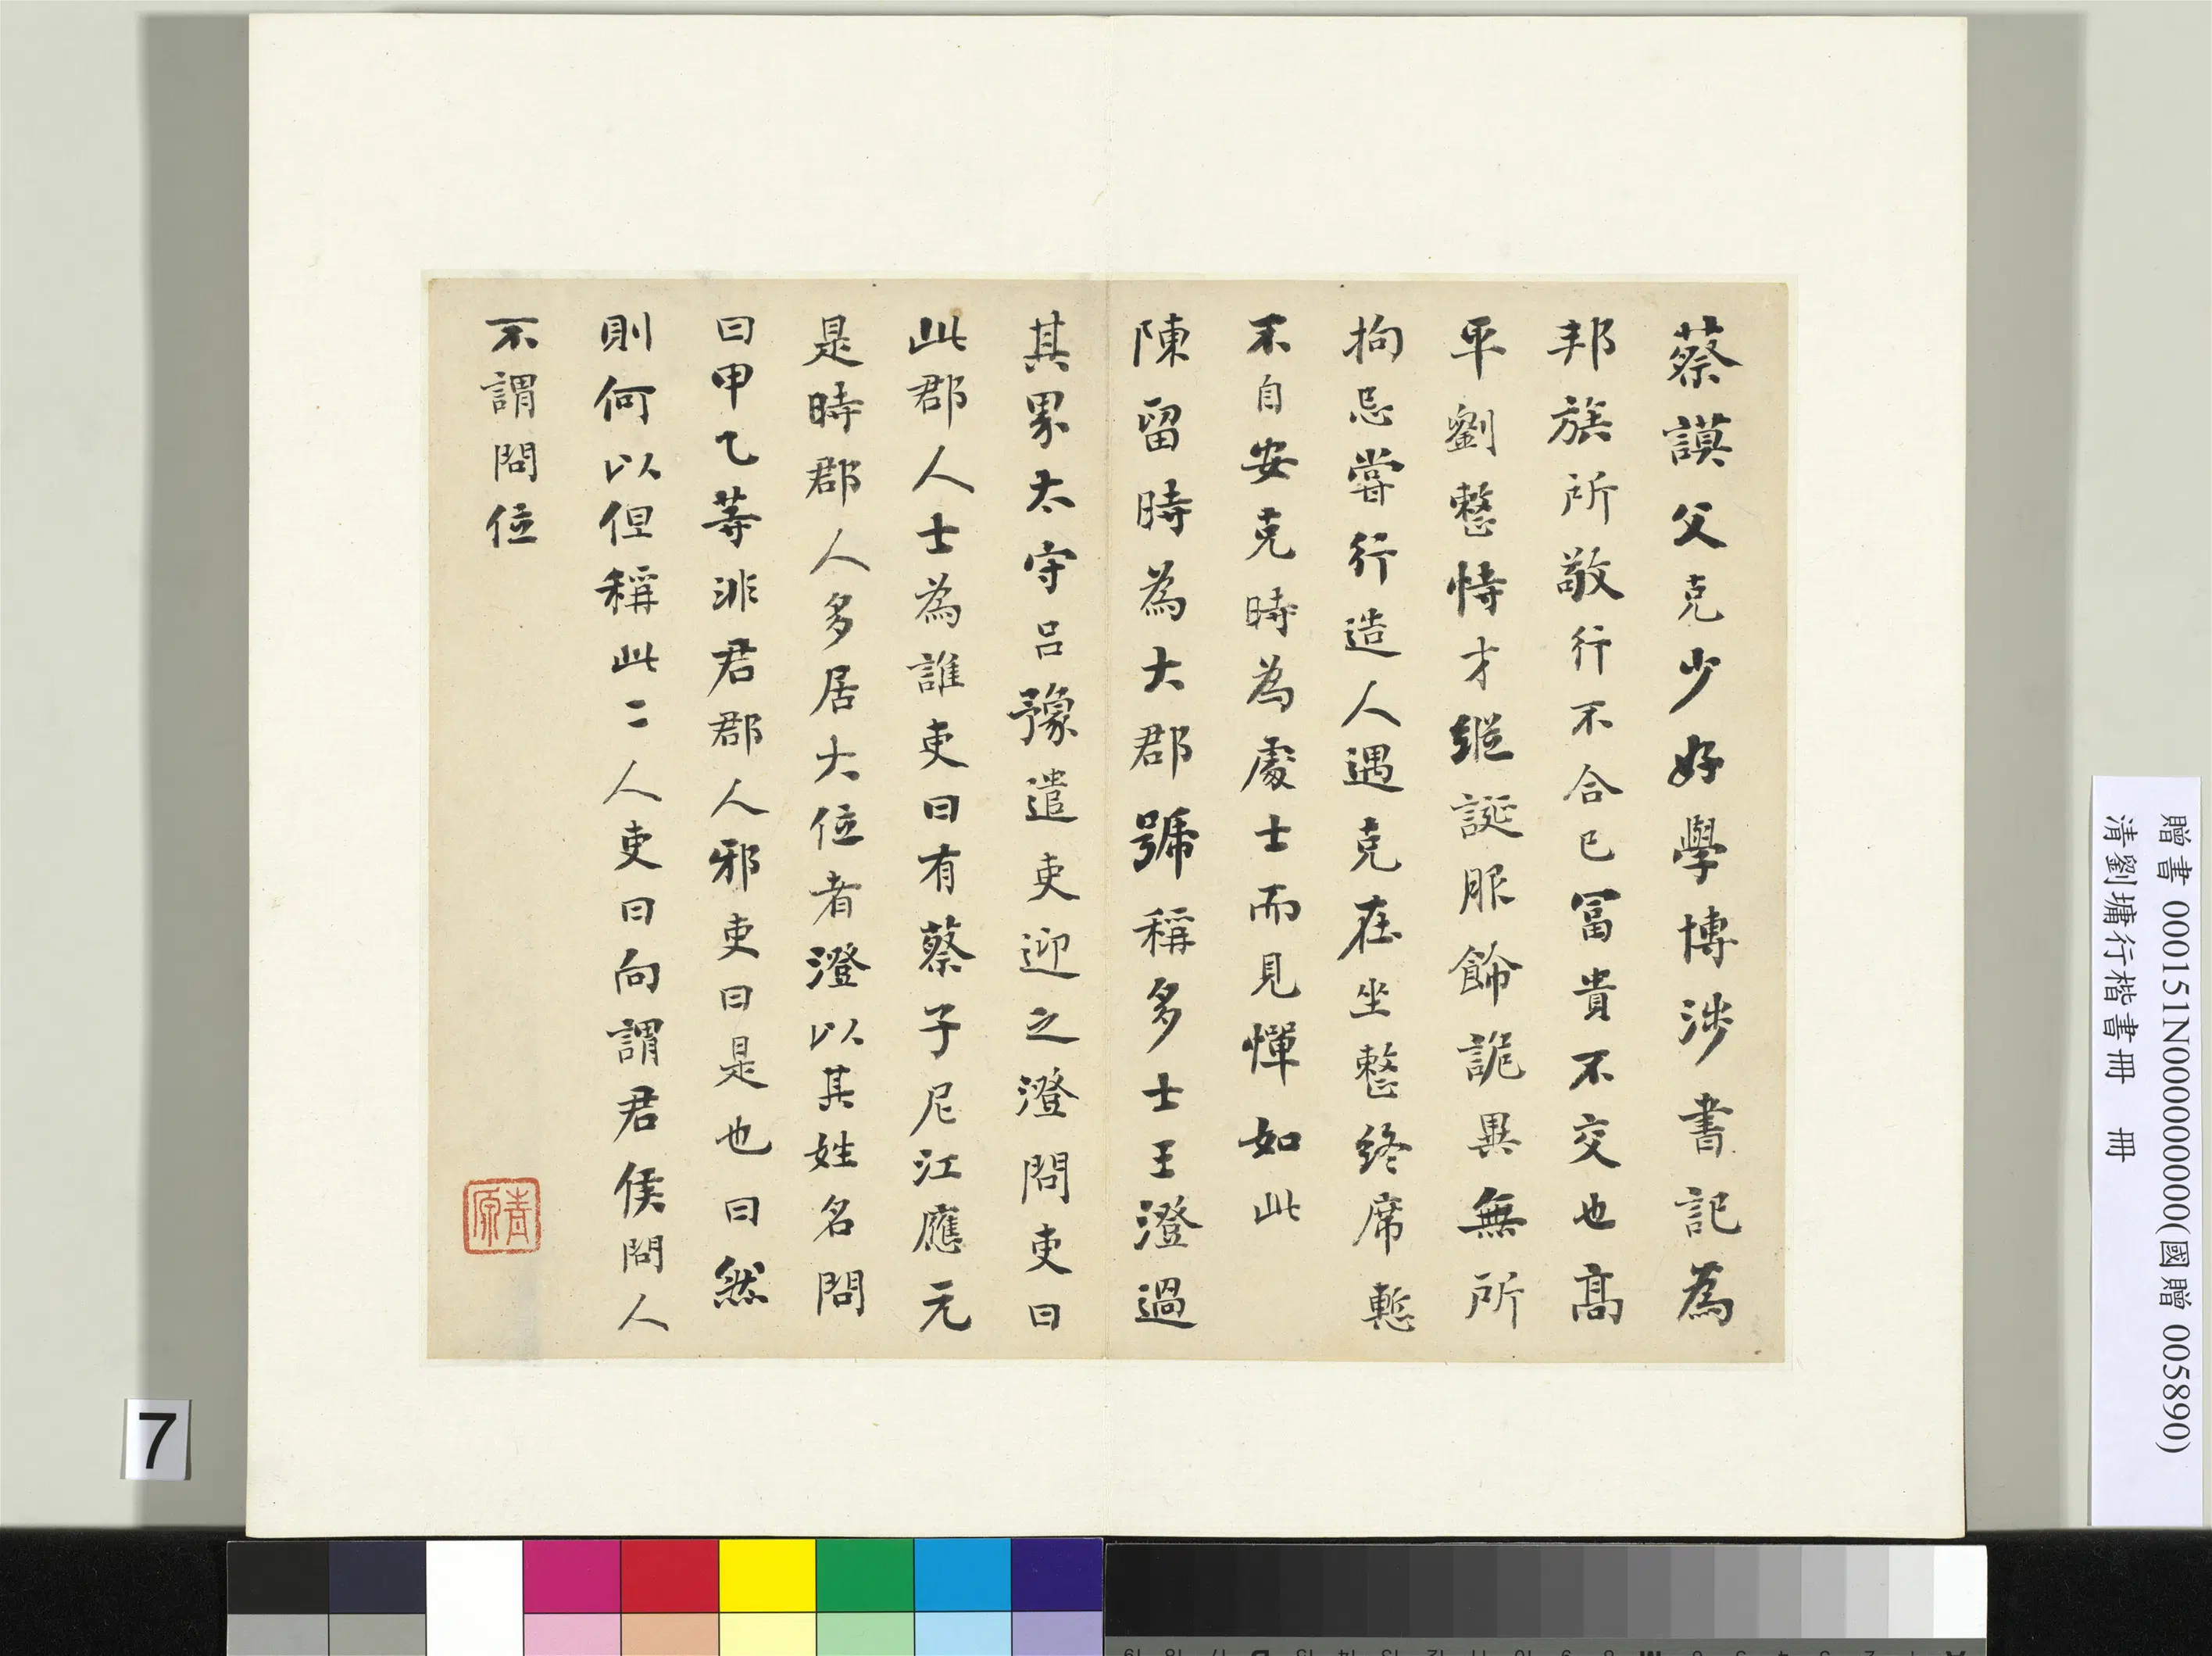 蔡謨父克少好學博涉書記為
邦族所敬行不合己冨貴不交也高
平劉整恃才縱誕服飾詭異無所
拘忌嘗行造人遇克在坐整終席慙
不自安克時為處士而見憚如此
陳留時為大郡號稱多士王澄過
其界太守呂豫遣吏迎之澄問吏曰
此郡人士為誰吏曰有蔡子尼江應元
是時郡人多居大位者澄以其姓名問
曰甲乙等非君郡人邪吏曰是也曰然
則何以但稱此二人吏曰向謂君侯問人
不謂問位
青原
贈書 000151N000000000(國贈 005890)
清劉墉行楷書冊 冊
7